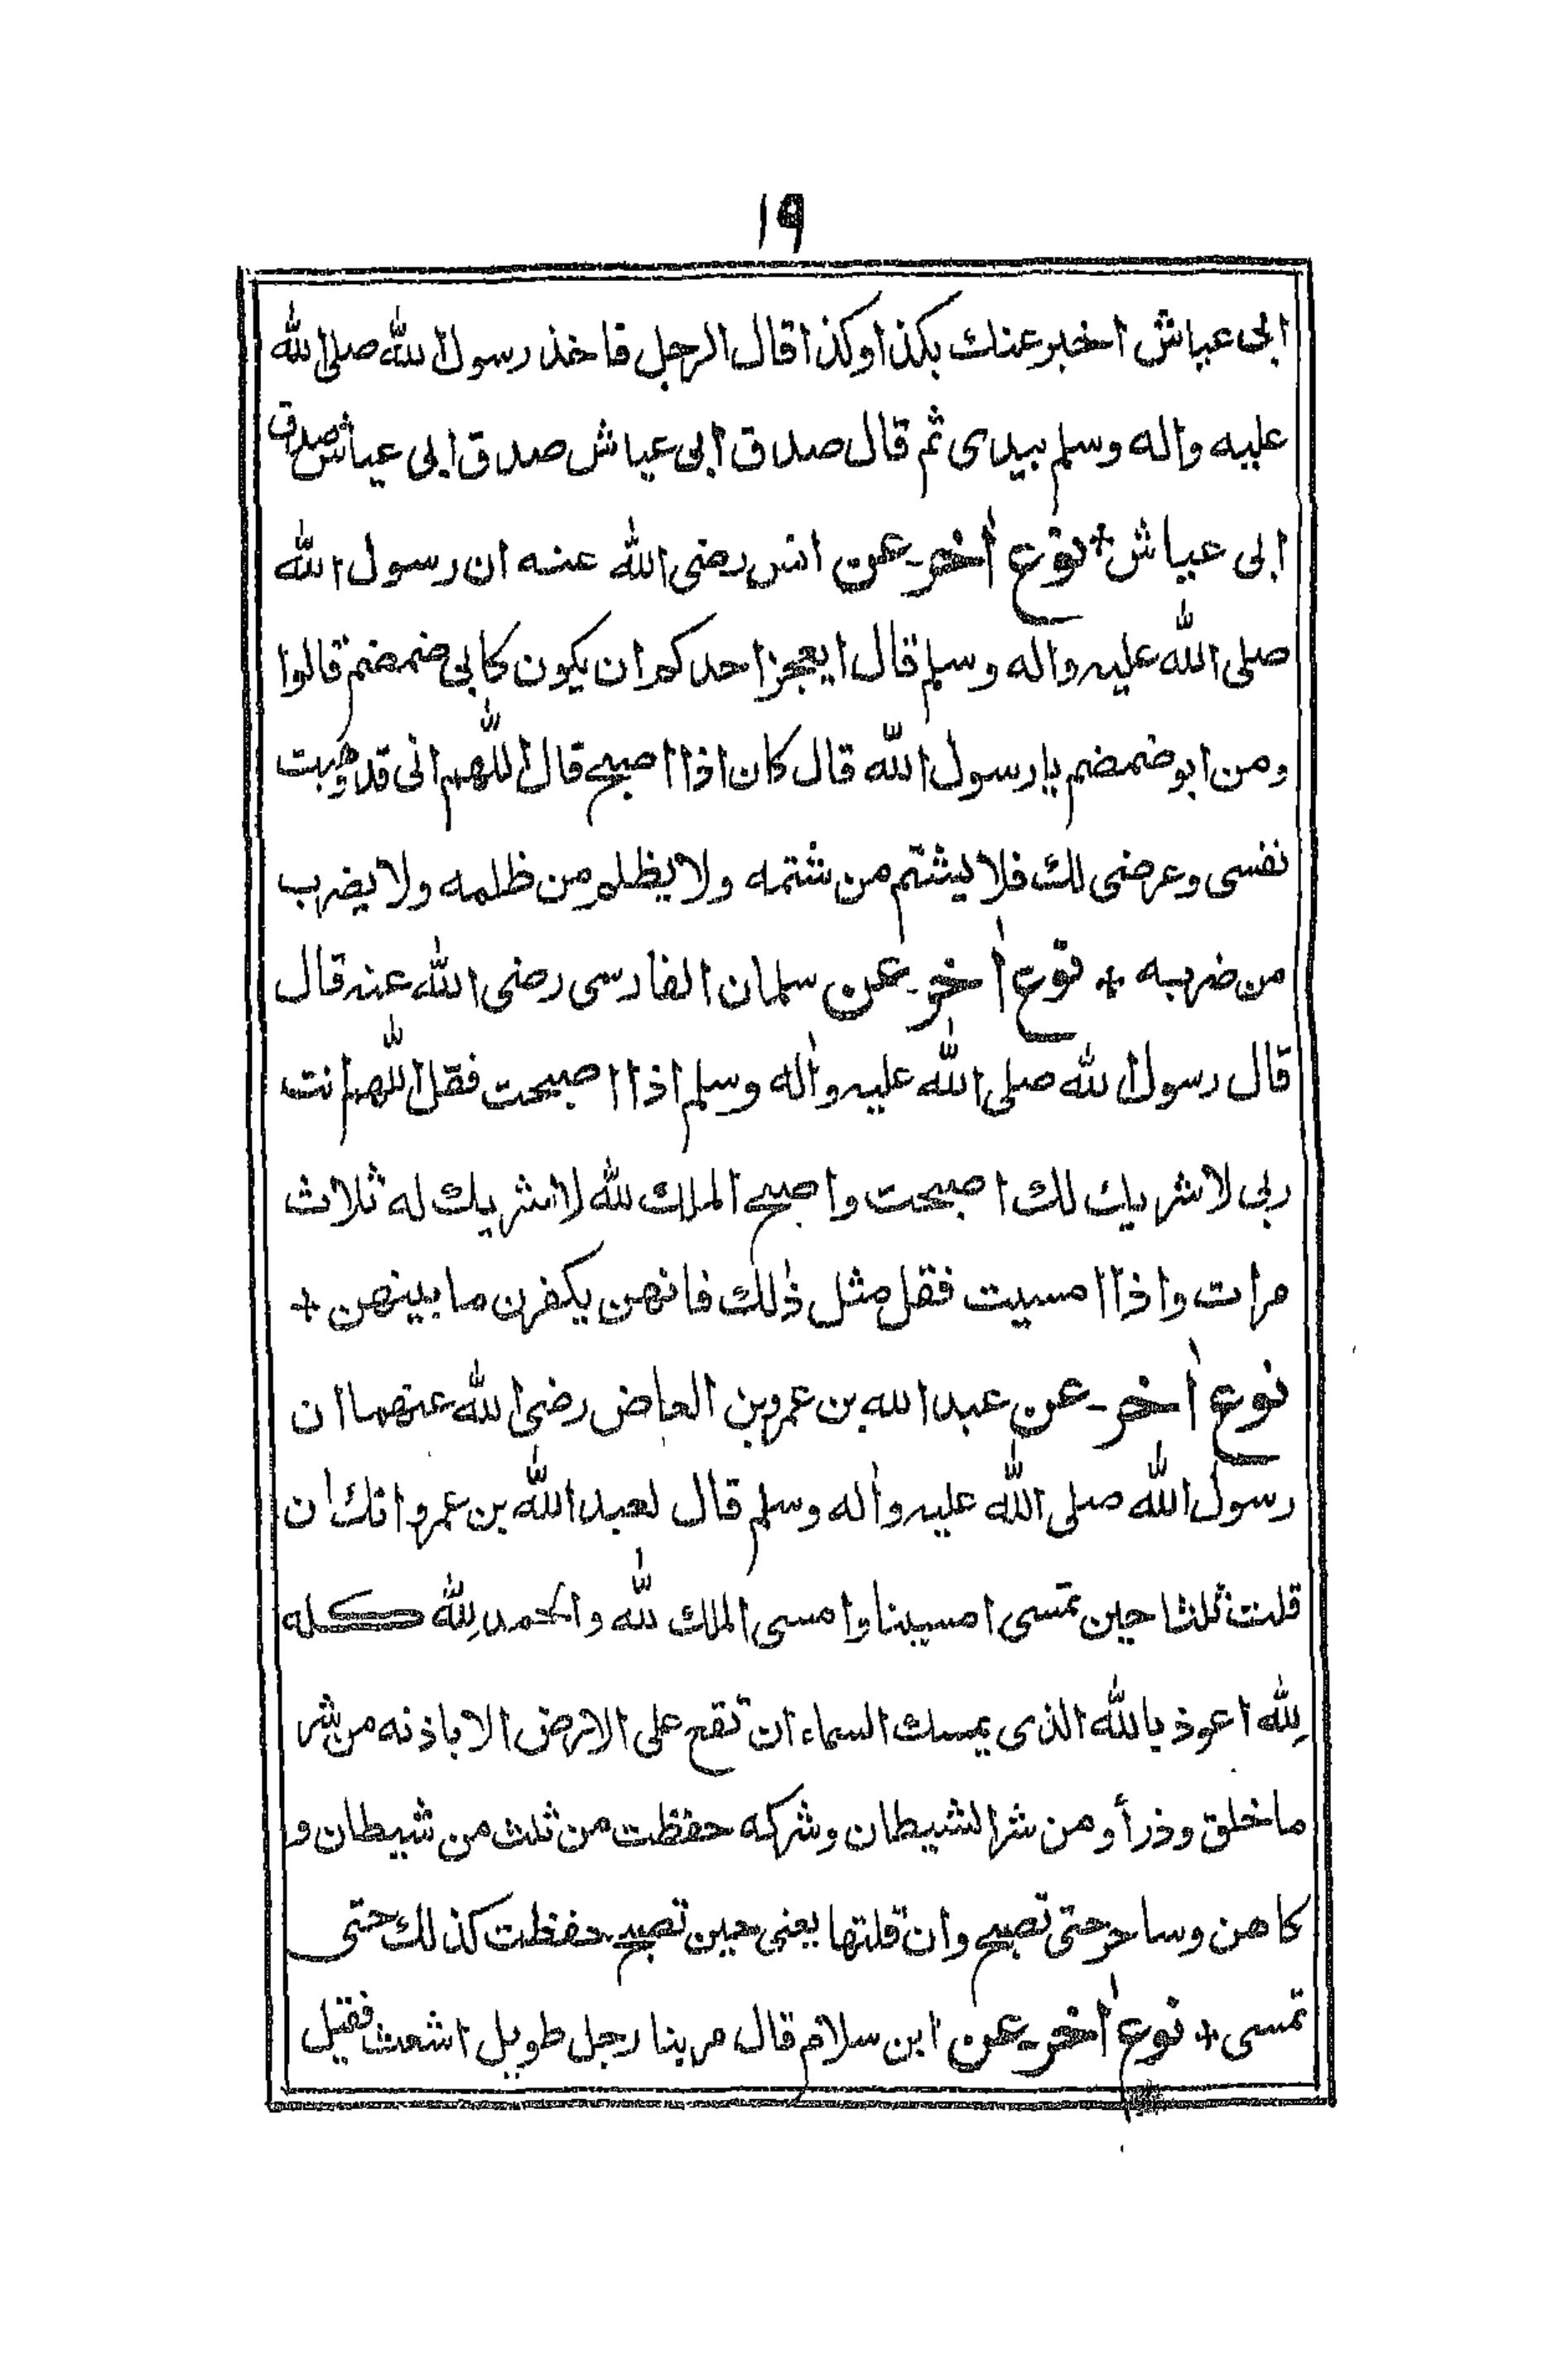 ۱۹
ابی عیاش اخبر عنك بكذا وكذا قال الرجل فاخذ رسول الله صلى الله
علیه واٰله وسلم بیدی ثم قال صدق ابی عیاش صدق ابی عیاش صدق
ابی عیاش + نوع اٰخر۔ عن انس رضی الله عنه ان رسول الله
صلی الله علیه واله وسلم قال ایعجز احدكم ان یكون كابی ضمضم قالوا
ومن ابو ضمضم یا رسول الله قال كان اذا اصبح قال اللهم انی قد وهبت
نفسی وعرضی لك فلا یشتم من شتمه ولا یظلم من ظلمه ولا یضرب
من ضربه + نوع اٰخر۔ عن سلمان الفارسی رضی الله عنه قال
قال رسول الله صلی الله علیه واٰله وسلم اذا اصبحت فقل اللهم انت
ربی لا شریك لك اصبحت واصبح الملك لله لا شریك له ثلاث
مرات واذا امسیت فقل مثل ذٰلك فانهن یكفرن ما بینهن +
نوع اٰخر۔ عن عبد الله بن عمرو بن العاض رضی الله عنهما ان
رسول الله صلی الله علیه واٰله وسلم قال لعبد الله بن عمرو انك ان
قلت ثلثا حین تمسی امسینا وامسی الملك لله والحمد لِلّٰه كله
لِلّٰه اعوذ بالله الذی یمسك السماء ان تقع علی الارض الا باذنه من شر
ما خلق وذرأ ومن شر الشیطان وشركه حفظت من ثلث من شیطان و
كاهن وساحر حتی تصبح وان قلتها یعنی حین تصبح حفظت كذلك حتی
تمسی + نوع اٰخر۔ عن ابن سلام قال مر بنا رجل طویل اشعث فقیل